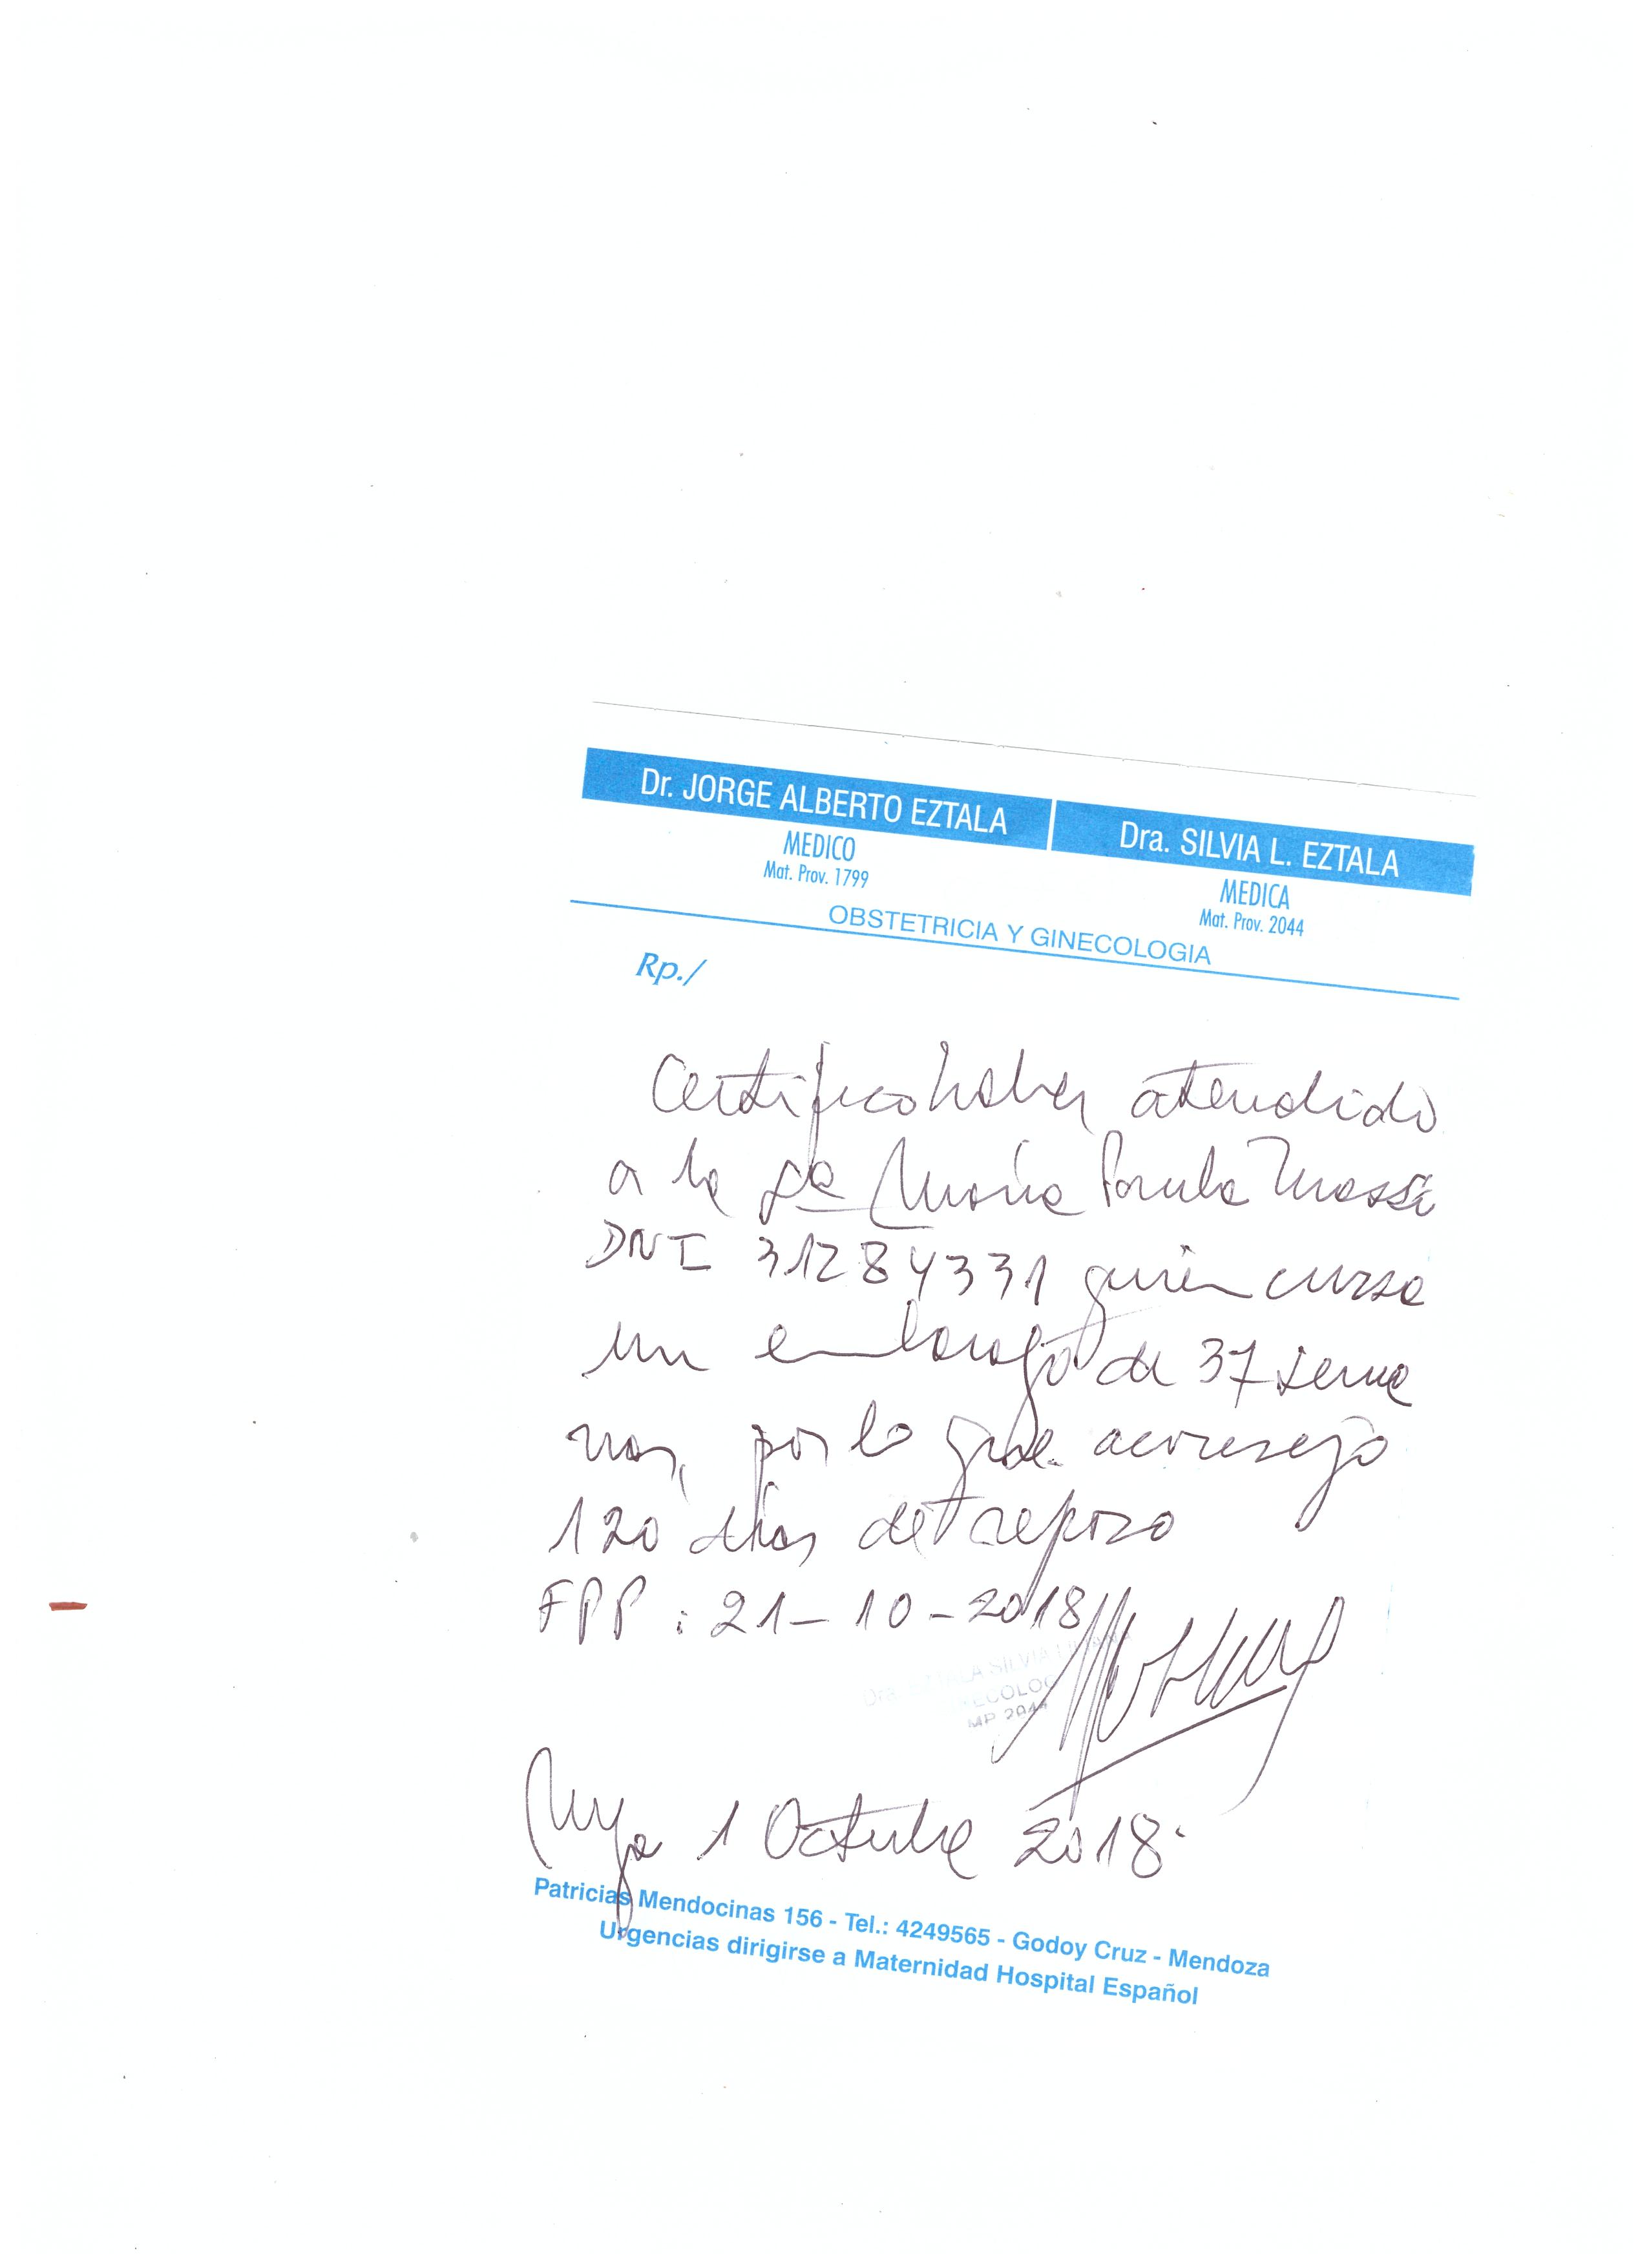 Dr. JORGE ALBERTO EZTALA
MEDICO
Mat. Prov. 1799
Dra. SILVIA L. EZTALA
MEDICA
Mat. Prov. 2044
OBSTETRICIA Y GINECOLOGIA
Rp./
Certifico haber atendido
a la Sra María Paula Massi
DNI 31284331 quien cursa
un embarazo de 37 sema
nas, por lo que aconsejo
120 días de reposo
FPP : 21-10-2018
Dra. EZTALA SILVIA LILIANA
MP 2044
Mza 1 Octubre 2018.
Patricias Mendocinas 156 - Tel.: 4249565 - Godoy Cruz - Mendoza
Urgencias dirigirse a Maternidad Hospital Español